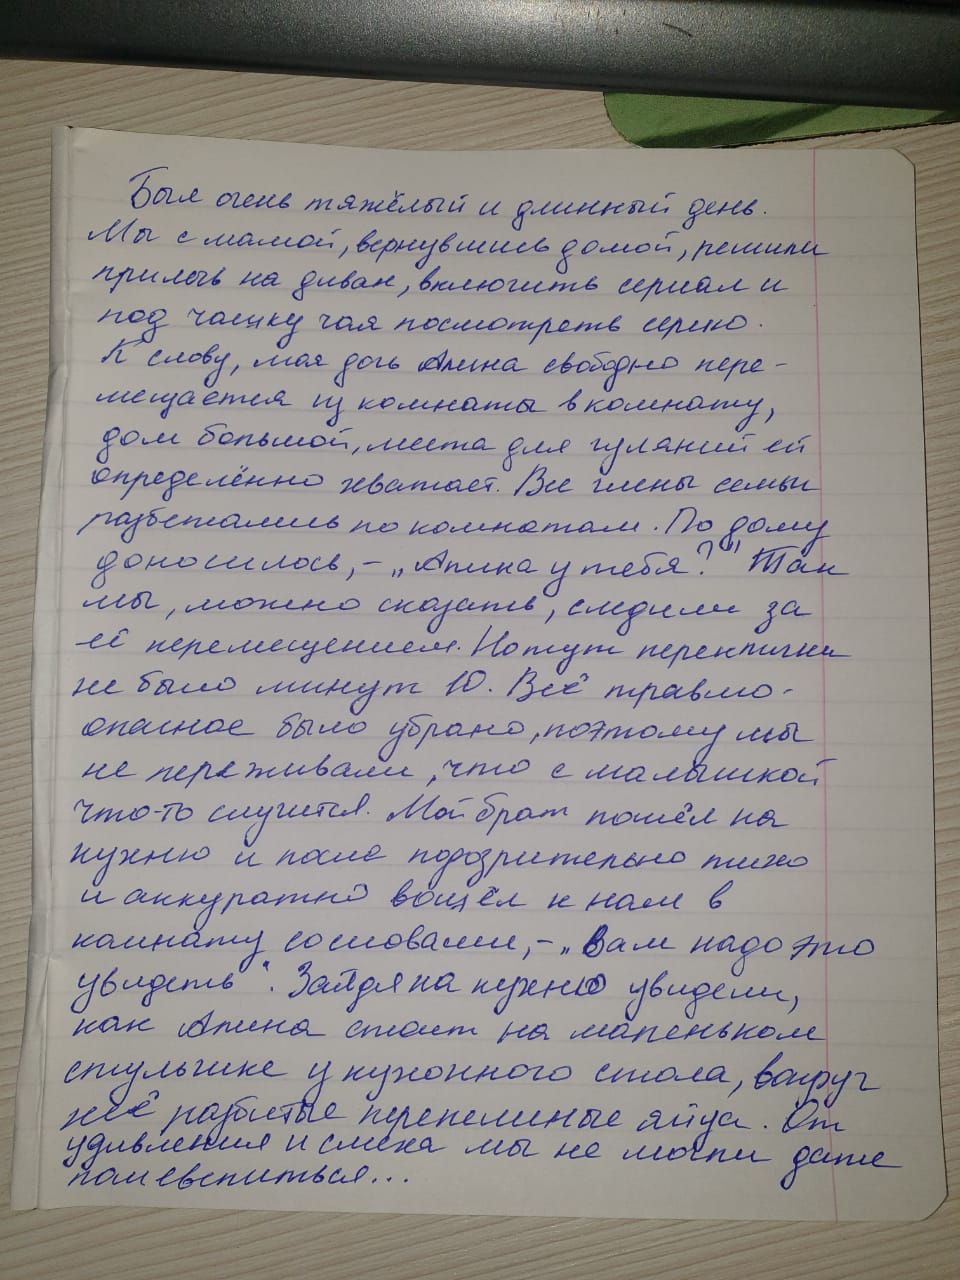 Был очень тяжёлый и длинный день.
Мы с мамой, вернувшись домой, решили
прилечь на диван, включить сериал и
под чашку чая посмотреть серию.
К слову, моя дочь Алина свободно пере-
мещается из комнаты в комнату,
дом большой, места для гуляний ей
определённо хватает. Все члены семьи
разбежались по комнатам. По дому
доносилось, - „Алина у тебя?" Так
мы, можно сказать, следили за
её перемещением. Но тут переклички
не было минут 10. Всё травмо-
опасное было убрано, поэтому мы
не переживали, что с малышкой
что-то случится. Мой брат пошёл на
кухню и после подозрительно тихо
и аккуратно вошёл к нам в
комнату со словами, - „Вам надо это
увидеть". Зайдя на кухню увидели,
как Алина стоит на маленьком
стульчике у кухонного стола, вокруг
неё разбитые перепелиные яйца. От
удивления и смеха мы не могли даже
пошевелиться...